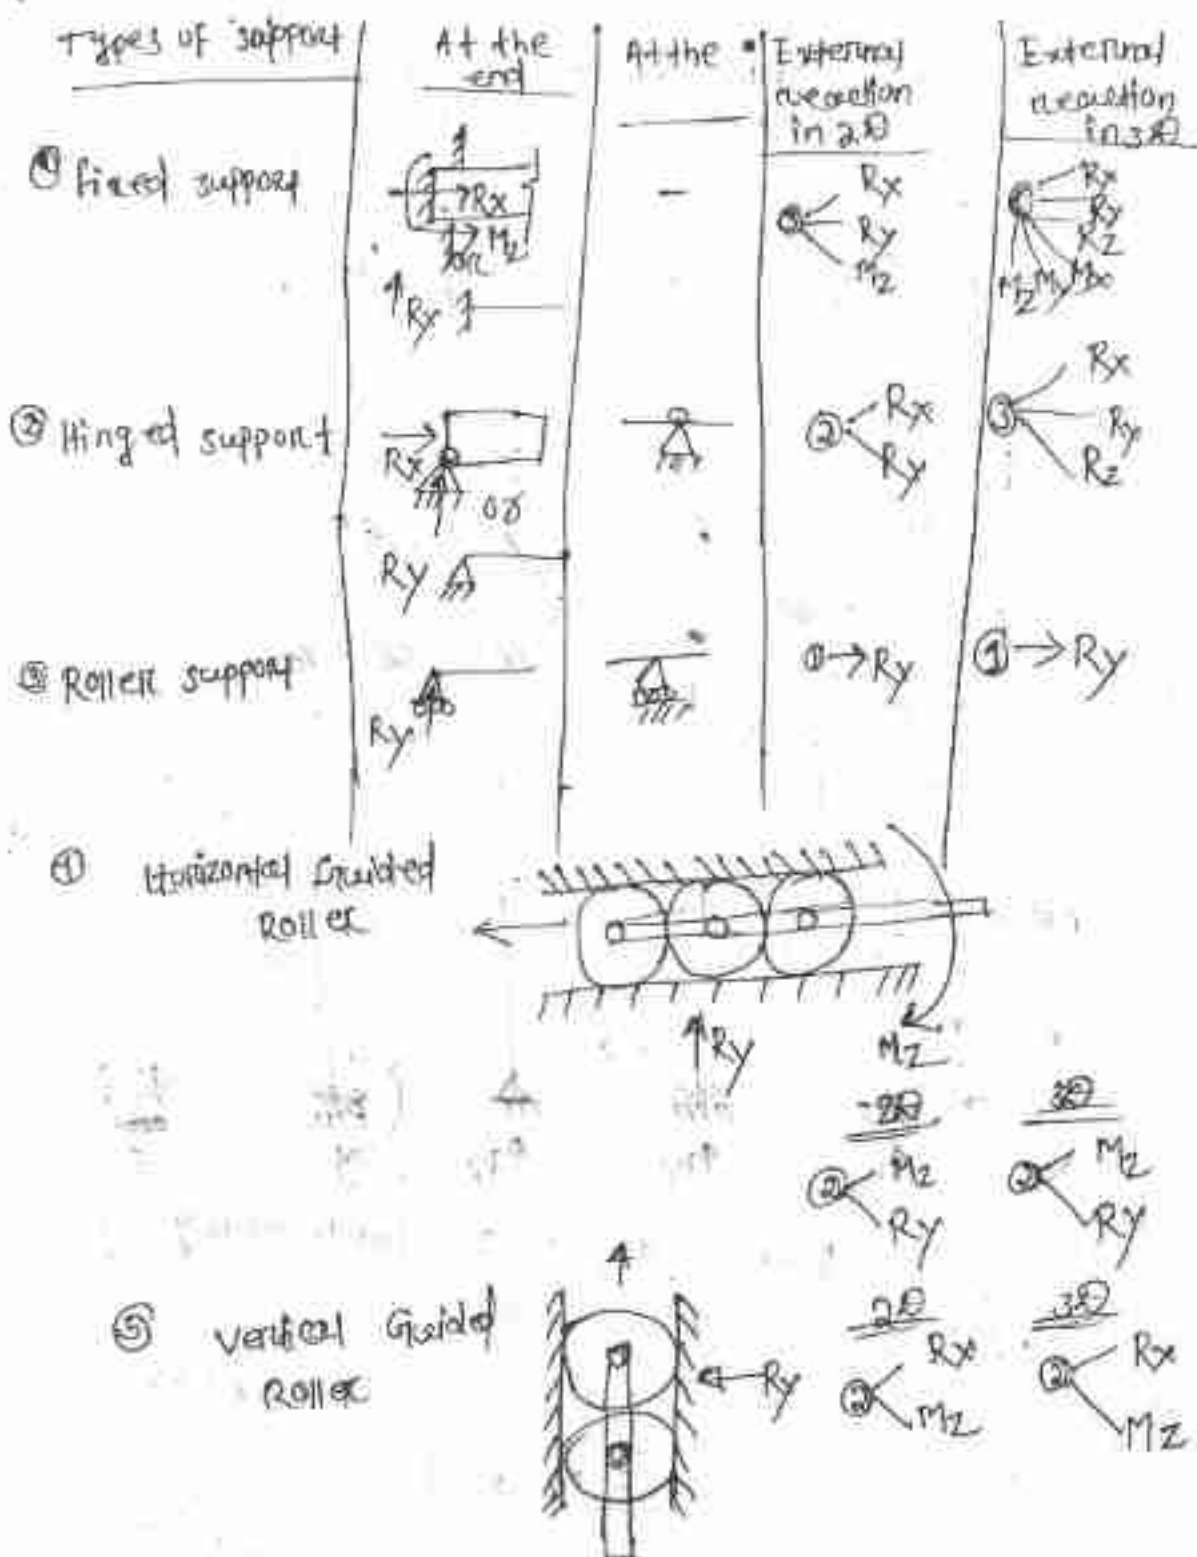 Types of support
At the
end
At the
External
reaction
in 2D
External
reaction
in 3D
① fixed support
Rx
Mz
or
Ry
—
③
Rx
Ry
Mz
Rx
Ry
Rz
Mz My
② Hinged support
Rx
or
Ry
②
Rx
Ry
③
Rx
Ry
Rz
③ Roller support
Ry
① → Ry
① → Ry
④ Horizontal Guided
Roller
Ry
Mz
2D
② Mz
Ry
3D
② Mz
Ry
⑤ Vertical Guided
Roller
Ry
2D
② Rx
Mz
3D
② Rx
Mz